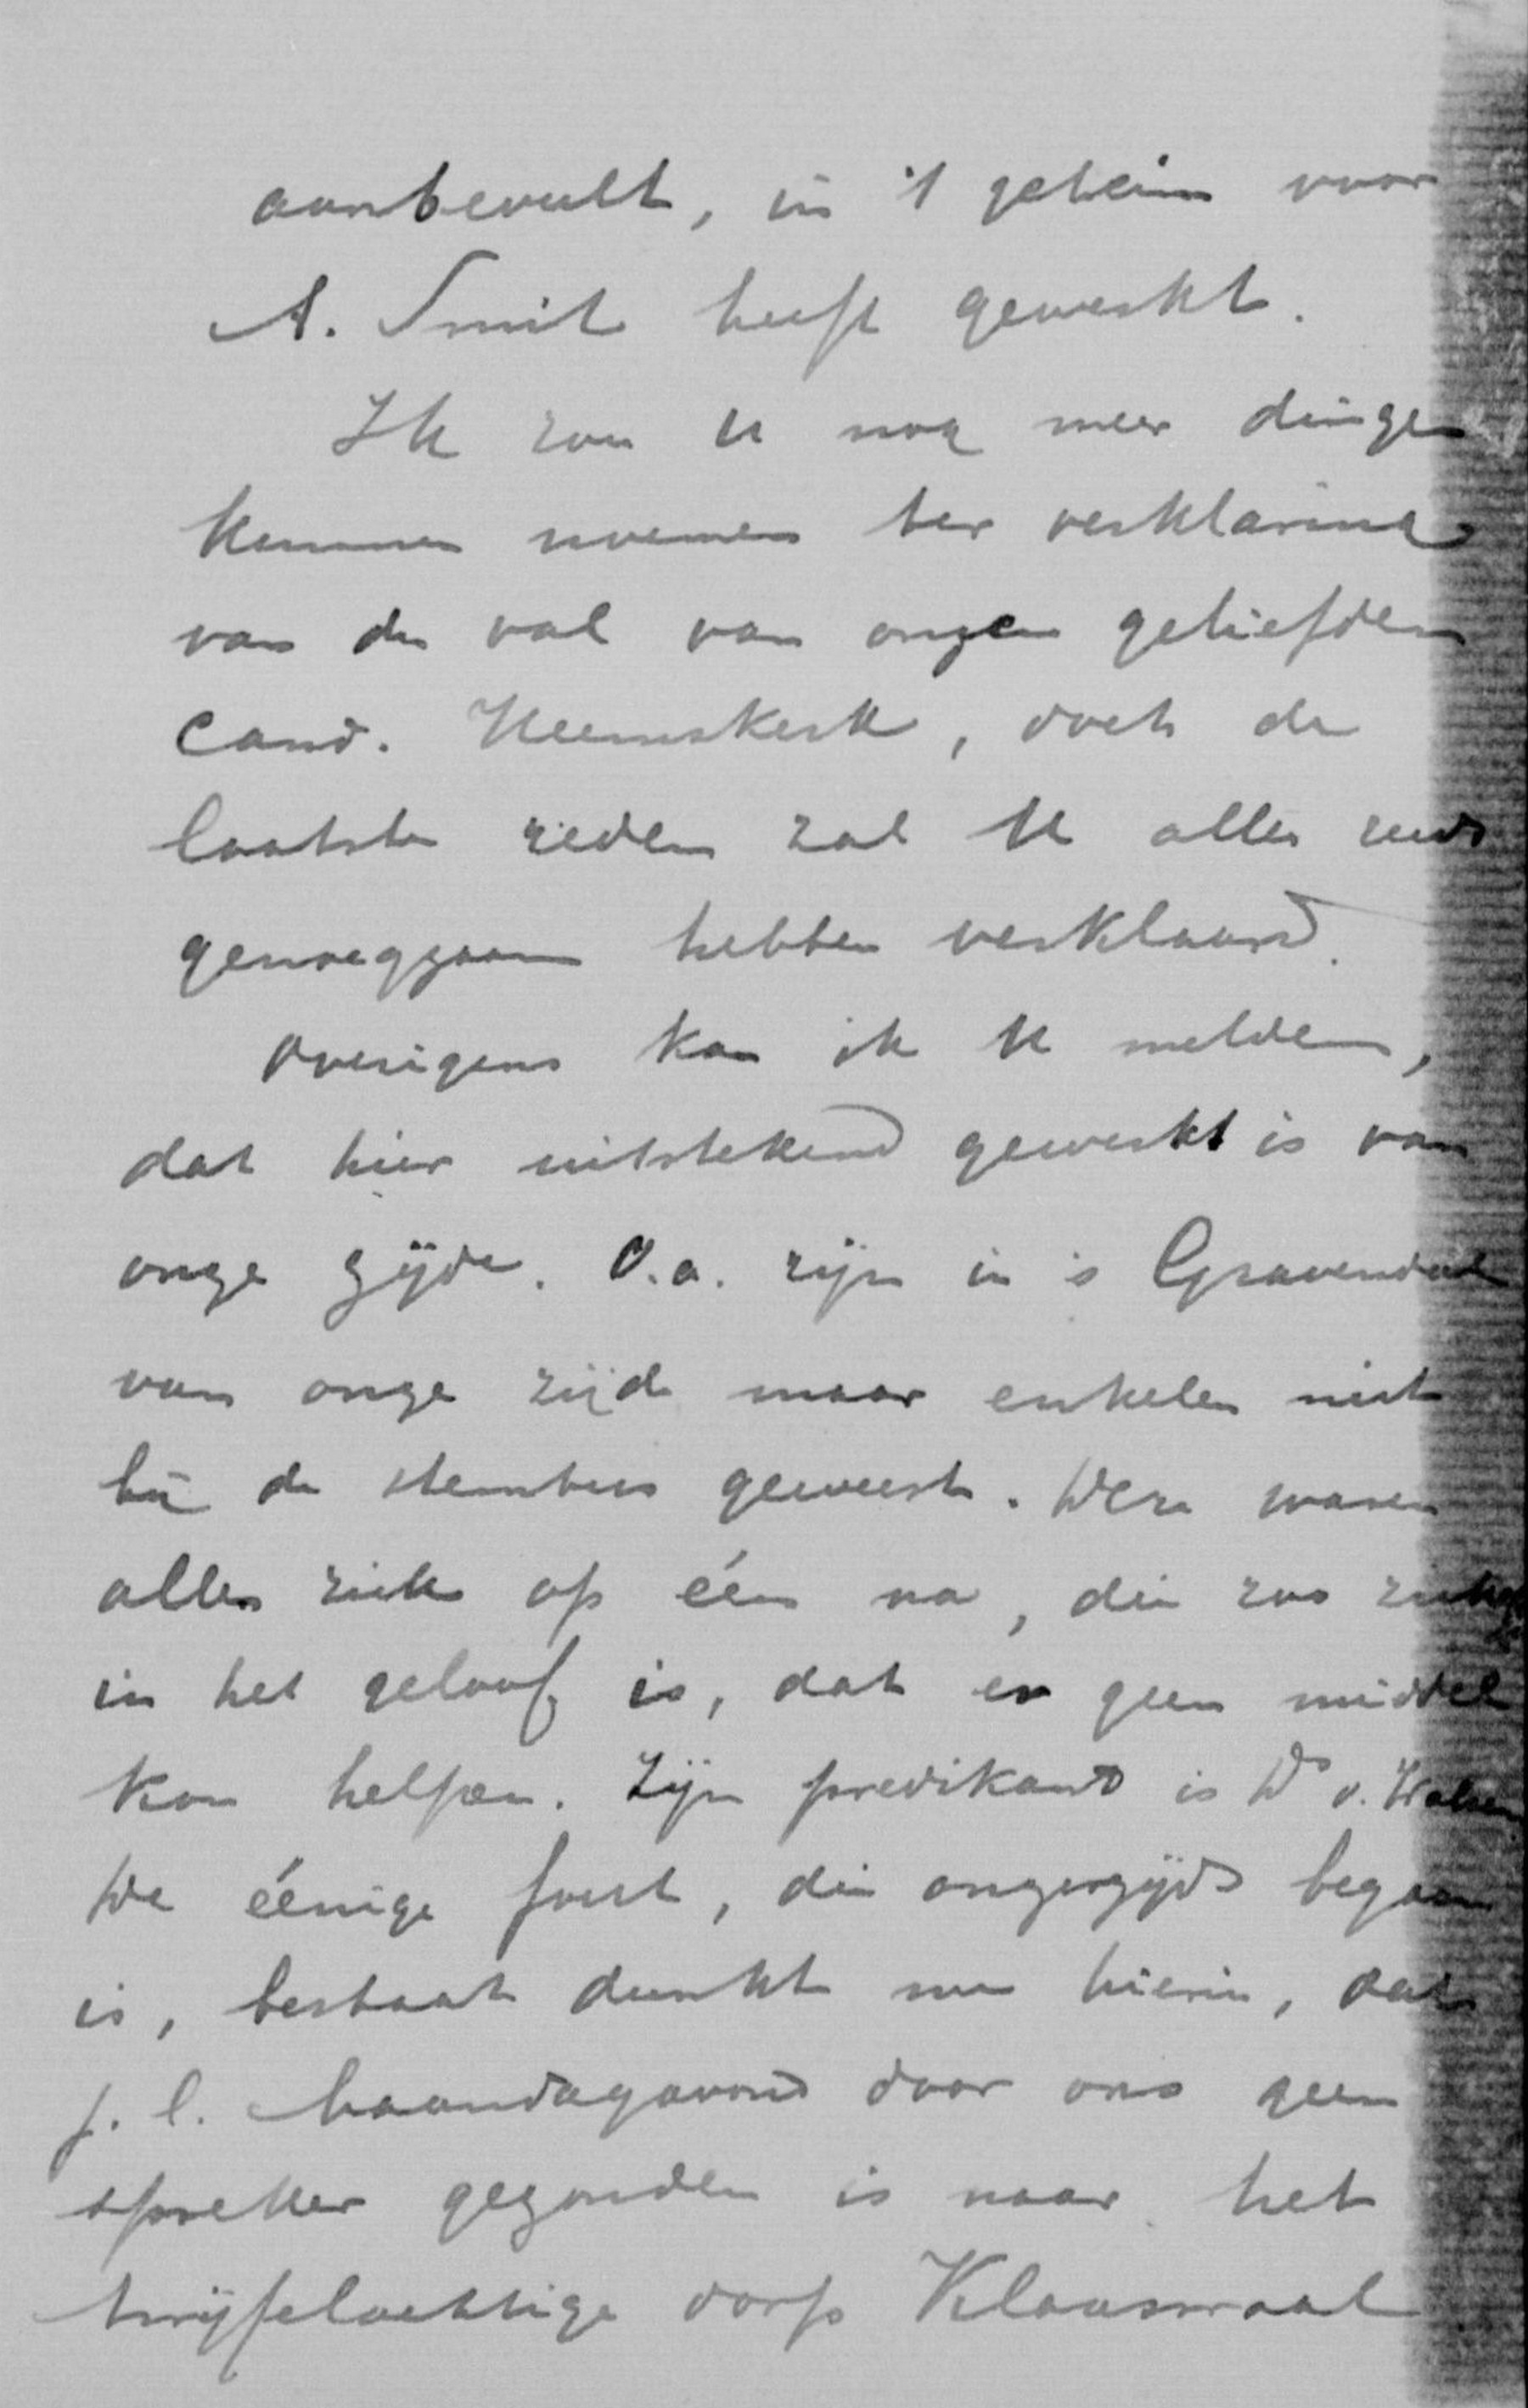 aanbeveelt, in 't geheim voor
A. Smit heeft gewerkt.
Ik zou U nog meer dingen
kunnen noemen ter verklaring
van den val van onzen geliefden
cand. Heemskerk, doch de
laatste reden zal U alles reeds
genoegzaam hebben verklaard.
Overigens kan ik U melden,
dat hier uitstekend gewerkt is van
onze zijde. O.a. zijn in 's Gravendeel
van onze zijde maar enkelen niet
bij de stembus geweest. Deze waren
allen ziek op één na, die zoo ziek
in het geloof is, dat er geen middel
kon helpen. Zijn predikant is Ds v.
De éénige fout, die onzerzijds begaan
is, bestaat dunkt me hierin, dat
j.l. Maandagavond door ons geen
spreker gezonden is naar het
twijfelachtige dorp Klaaswaal